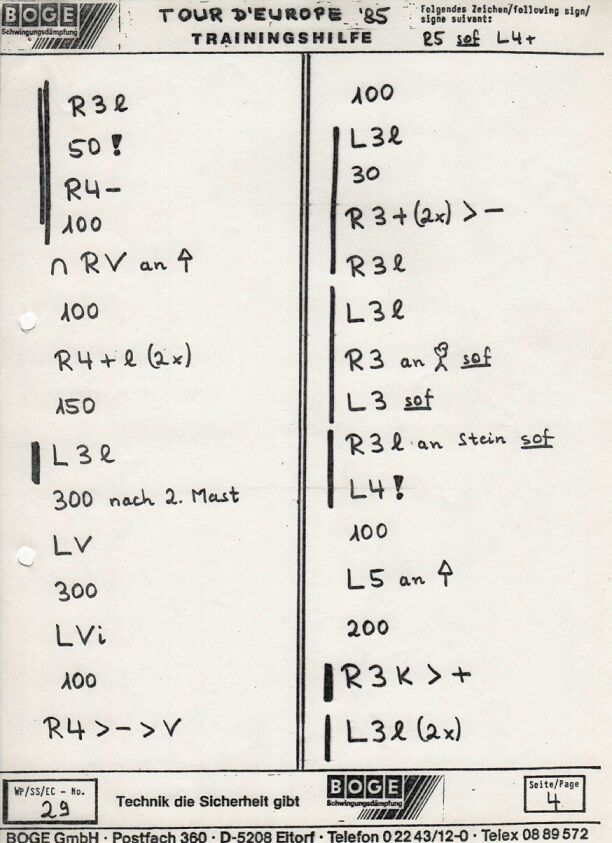 BOGE
Schwingungsdämpfung
TOUR D'EUROPE '85
TRAININGSHILFE
Folgendes Zeichen/following sign/
signe suivant:
R5 sof L4+
R3l
50 !
R4-
100
∩ RV an ↑
100
R4+l (2x)
150
L3l
300 nach 2. Mast
LV
300
LVi
100
R4 > - > V
100
L3l
30
R3+(2x) > -
R3l
L3l
R3 an sof
L3 sof
R3l an Stein sof
L4!
100
L5 an ↑
200
R3K > +
L3l (2x)
WP/SS/EC - No.
29
Technik die Sicherheit gibt
BOGE
Schwingungsdämpfung
Seite/Page
4
BOGE GmbH · Postfach 360 · D-5208 Eitorf · Telefon 0 22 43/12-0 · Telex 08 89 572